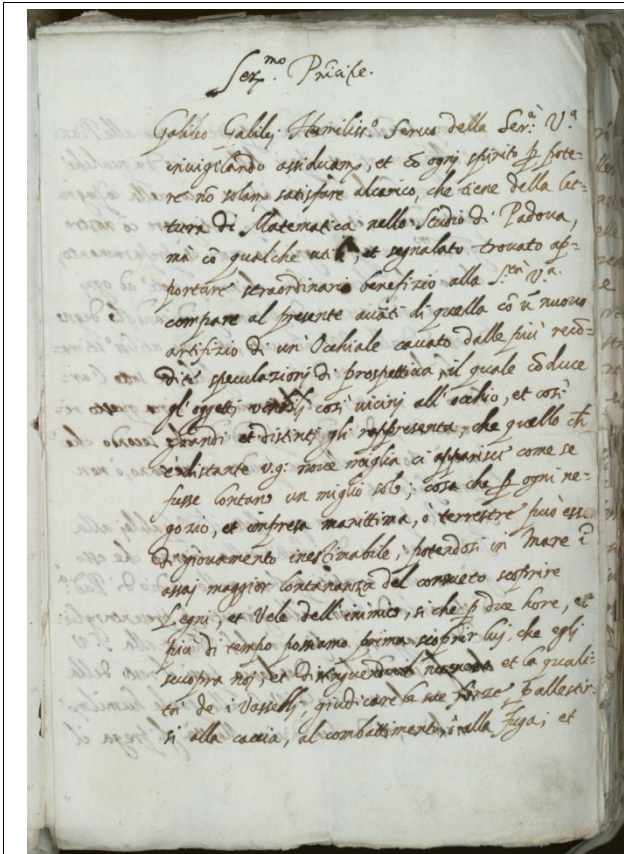 Ser.mo Prīcipe.
Galileo Galilej Humiliss.o Servo della Ser.à V.a
invigilando assiduam.e, et cō ognj spirito ꝑ pote=
re nō solam.e satisfare alcarico, che tiene della Let=
tura di Matematica nello Studio di Padova,
ma cō qualche utile, et segnalato trovato ap=
portare straordinario benefizio alla S.tà V.a.
compare al presente avāti di quella cō ū nuovo
artifizio di un' Occhiale cavato dalle più recō=
dite speculazionj di prospettiva, il quale cōduce
gl'oggetti visibili così vicinj all' occhio, et così
grandi et distinti gli rappresenta, che quello ch̄
è distante v.g. nove miglia ci apparisce come se
fusse lontano un miglio solo; cosa che ꝑ ogni ne=
gozio, et impresa marittima, ò terrestre può esser
di giovamento inestimabile; potendosi in Mare ī
assaj maggior lontananza del consueto scoprire
Legnj, et Vele dell'inimico, sì che ꝑ due hore, et
più di tempo possiamo prima scoprir luj, che egli
scuopra noj, et distinguendo il numero et la quali=
tà de i Vasselli, giudicare le sue forze ꝑ allestir=
si alla caccia, al combattimento, ò alla fuga; et